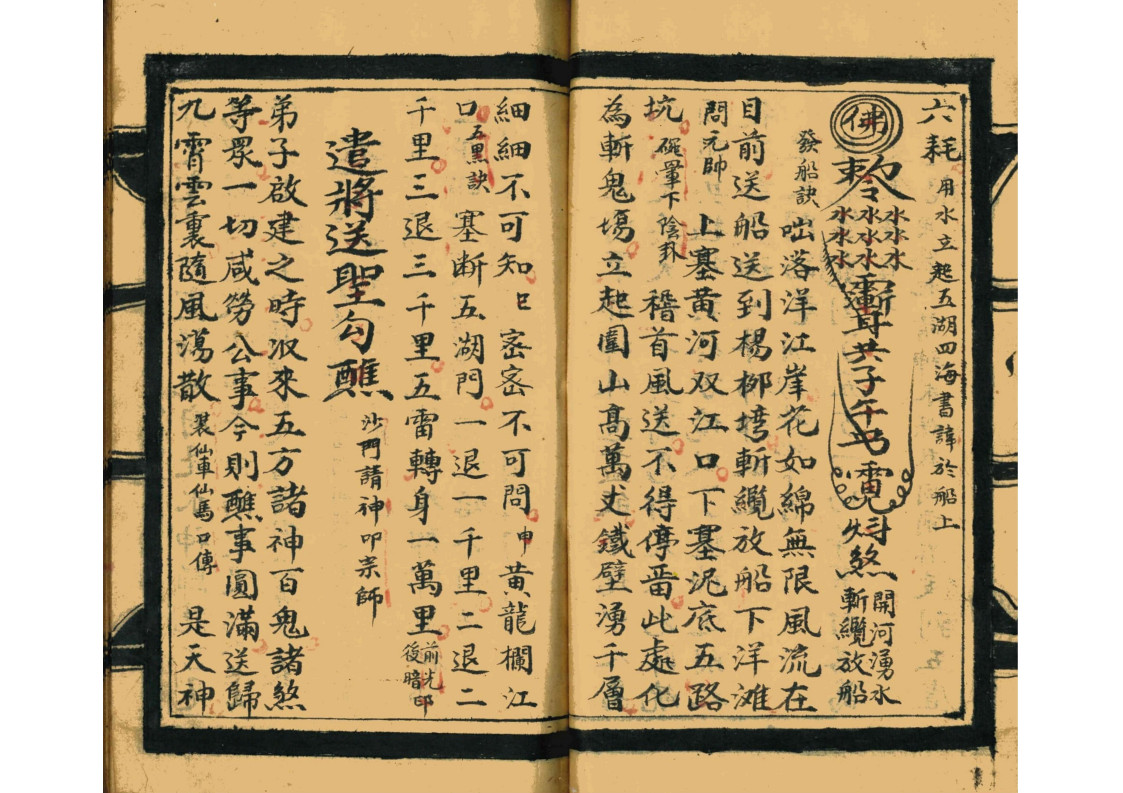 六耗 用水立起五湖四海書諱於船上
佛
敕令 水水水水水水水水水 共子午 煞 開河湧水斬纜放船
發船訣 咄落洋江岸花如綿無限風流在
目前送船送到楊柳塆斬纜放船下洋滩
問元帥 上塞黄河双江口下塞泥底五路
坑 碗罩下陰卦 稽首風送不得停畱此處化
為斬鬼塲立起圍山髙萬丈鐵壁湧千層
細細不可知 㠯 密密不可問 申 黄龍欄江
口 五黑訣 塞断五湖門一退一千里二退二
千里三退三千里五雷轉身一萬里 前光后暗印
遣將送聖勾醮 沙門請神叩宗師
弟子啟建之時收來五方諸神百鬼諸煞
等眾一切咸勞公事今則醮事圓滿送歸
九霄雲裏隨風蕩散 裝仙車仙馬口傳 是天神